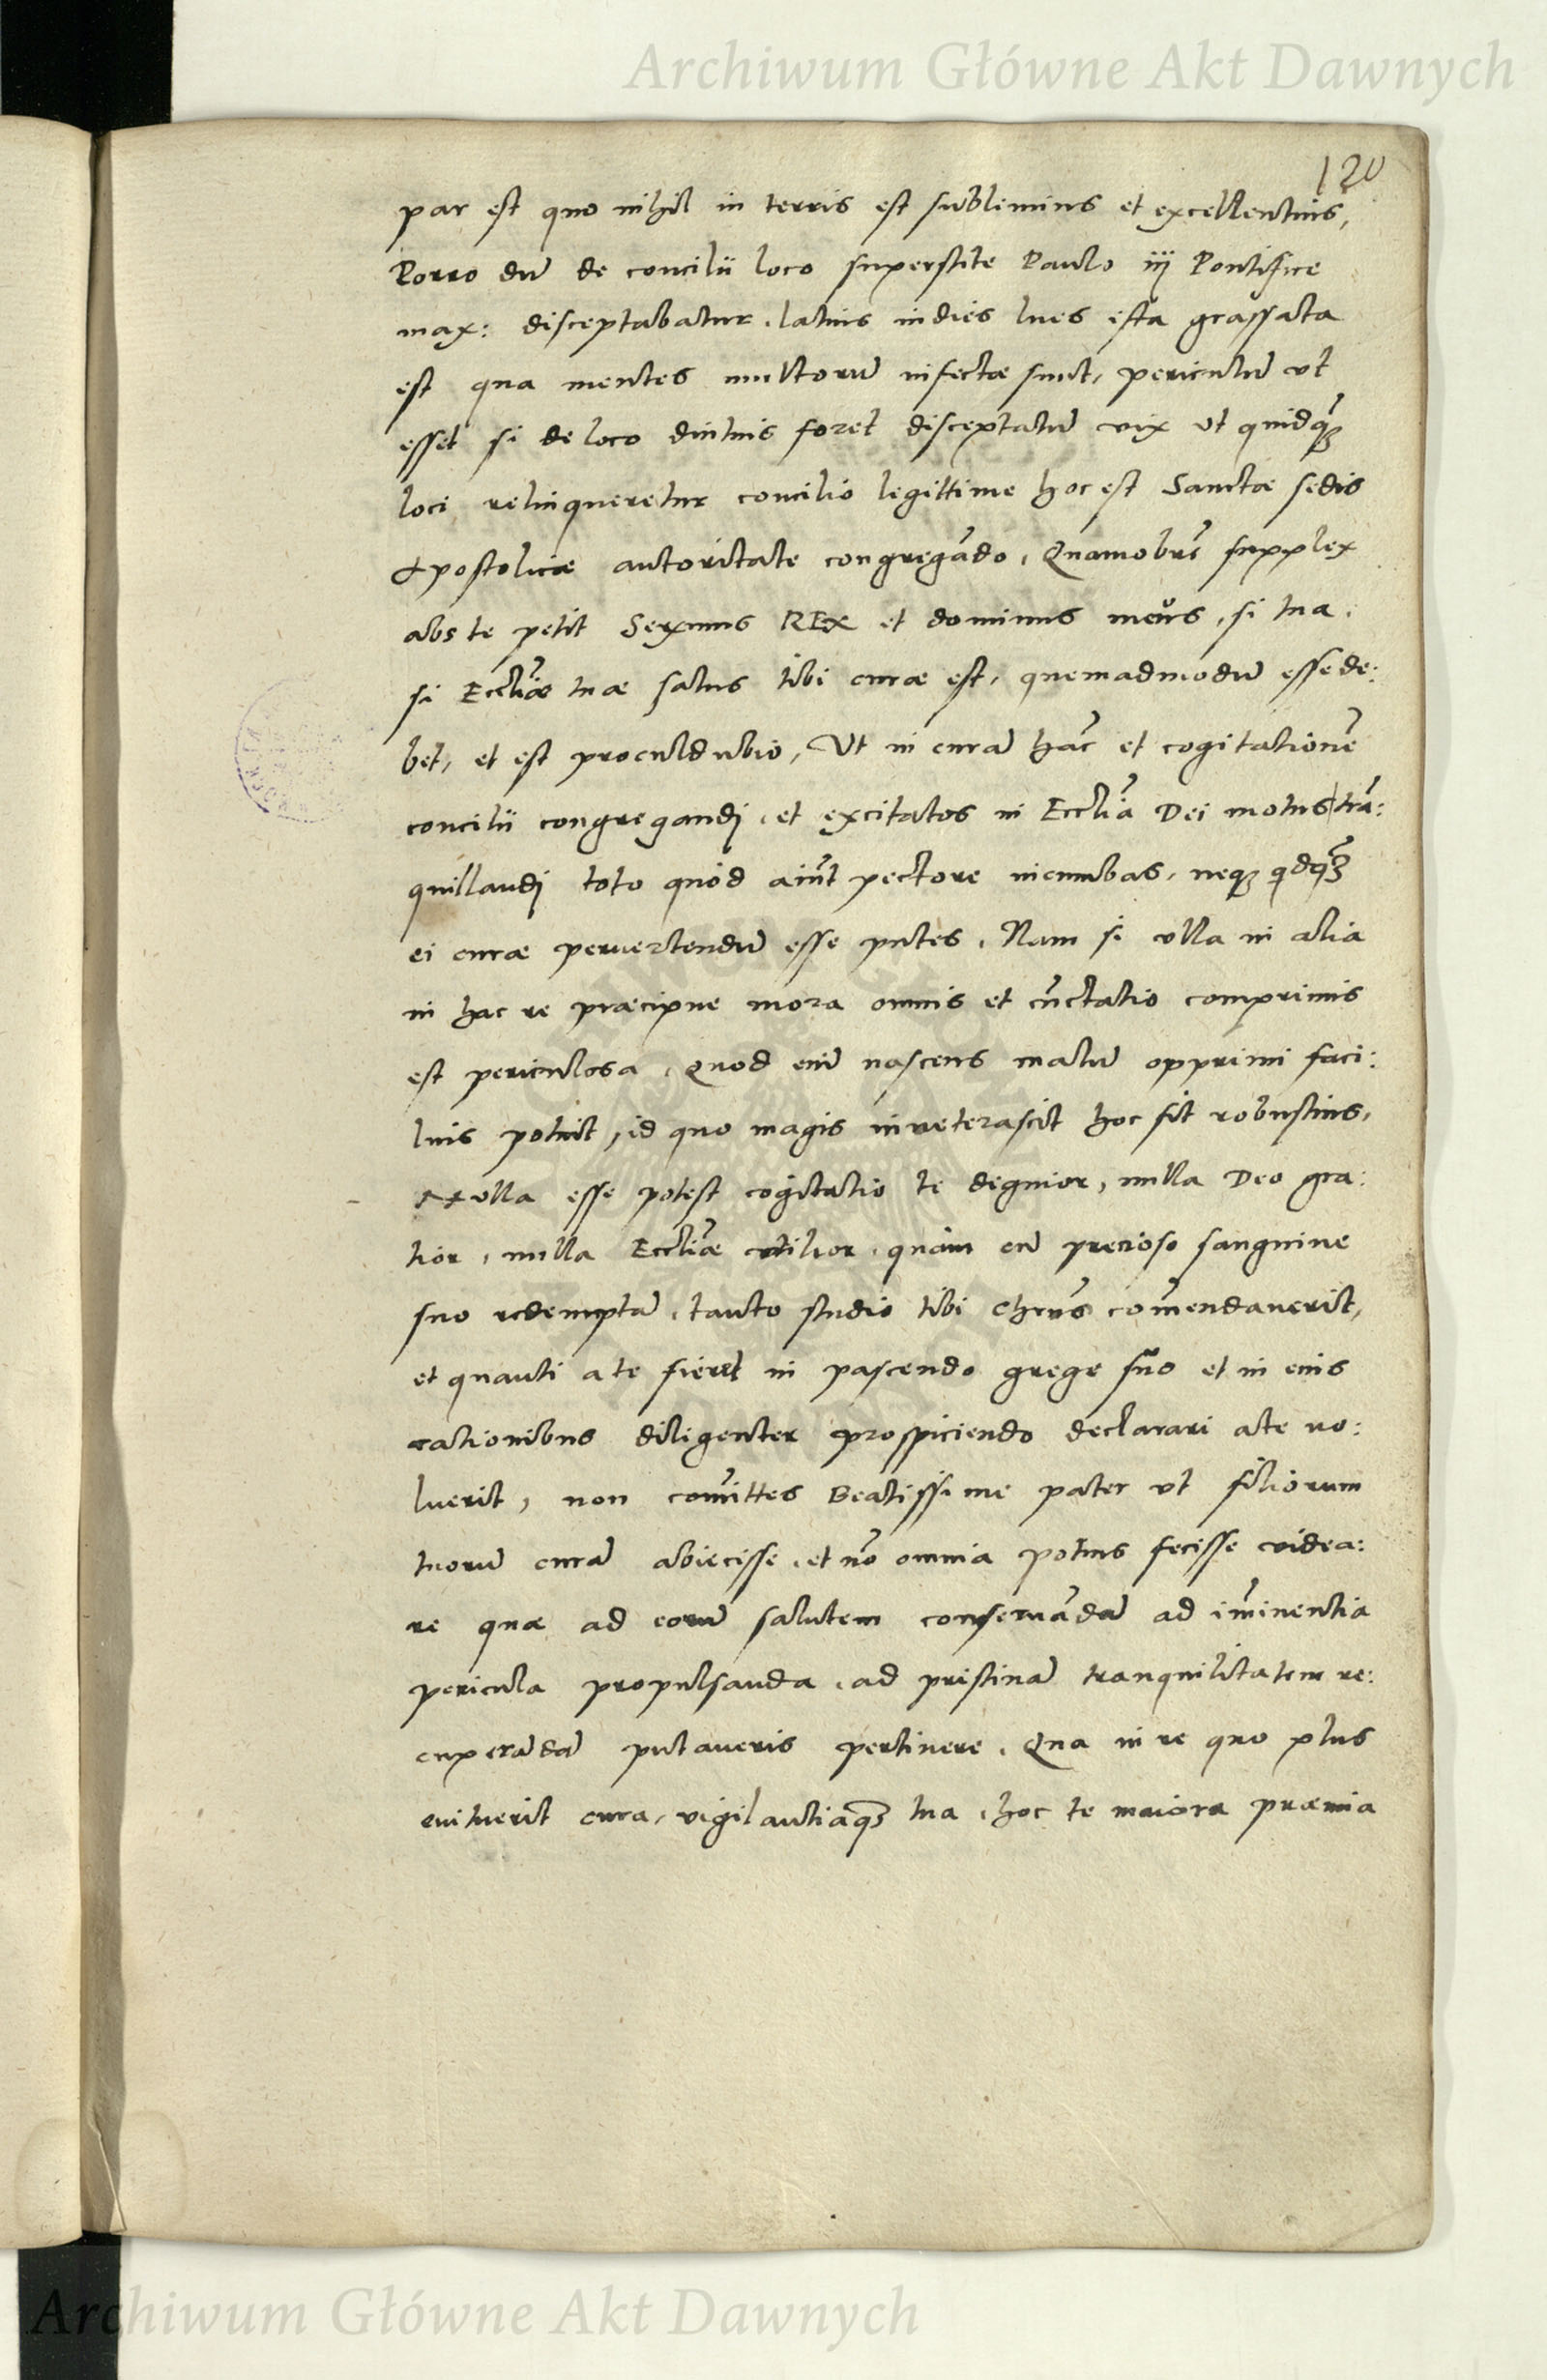 Archiwum Główne Akt Dawnych
120
par est quo nihil in terris est sublimius et excellentius,
Porro dū de concilii loco superstite Paulo iij Pontifice
max: disceptabatur, latius indies lues esta grassata
est qua mentes multorū infectæ sunt, periculū vt
esset si de loco diutius foret disceptatū vix vt quidq̃
loci relinqueretur concilio legittime hoc est Sanctæ sedis
Apostolicæ autoritate congregādo, Quamobrē supplex
abs te petit Serx̄mus REx et dominus meus, si tua,
si Eccliæ̃ tuæ salus tibi curæ est, quemadmodū esse de:
bet, et est proculdubio, Vt in curā hāc et cogitationē
concilii congregandi, et excitatos in Eccliã Dei motus trā:
quillandi toto quod aiūt pectore incumbas, neq; qdq̃
ei curæ pervertendū esse putes, Nam si vlla in alia
in hac re præcipue mora omnis et cūctatio comprimis
est periculosa, Quod enī nascens malū opprimi faci:
lius potuit, id quo magis inveterascit hoc fit robustius,
Nulla esse potest cogitatio te dignior, nulla Deo gra:
tior, nulla Eccliæ̃ vtilior, quàm eā precioso sanguine
suo redemptā, tanto studio tibi Chrūs com̄endaverit,
et quanti a te fieret in pascendo grege suo et in eius
rationibus diligenter prospiciendo declarari a te vo:
luerit, non com̄ittes Beatissime pater vt filiorum
tuorū curā abiecisse, et nō omnia potius fecisse videa:
re quæ ad eorū salutem conservādā ad im̄inentia
pericula propulsanda, ad pristinā tranquilitatem re:
cuperādā putaveris pertinere, Qua in re quo plus
enituerit cura, vigilantiaq; tua, hoc te maiora præmia
Archiwum Główne Akt Dawnych